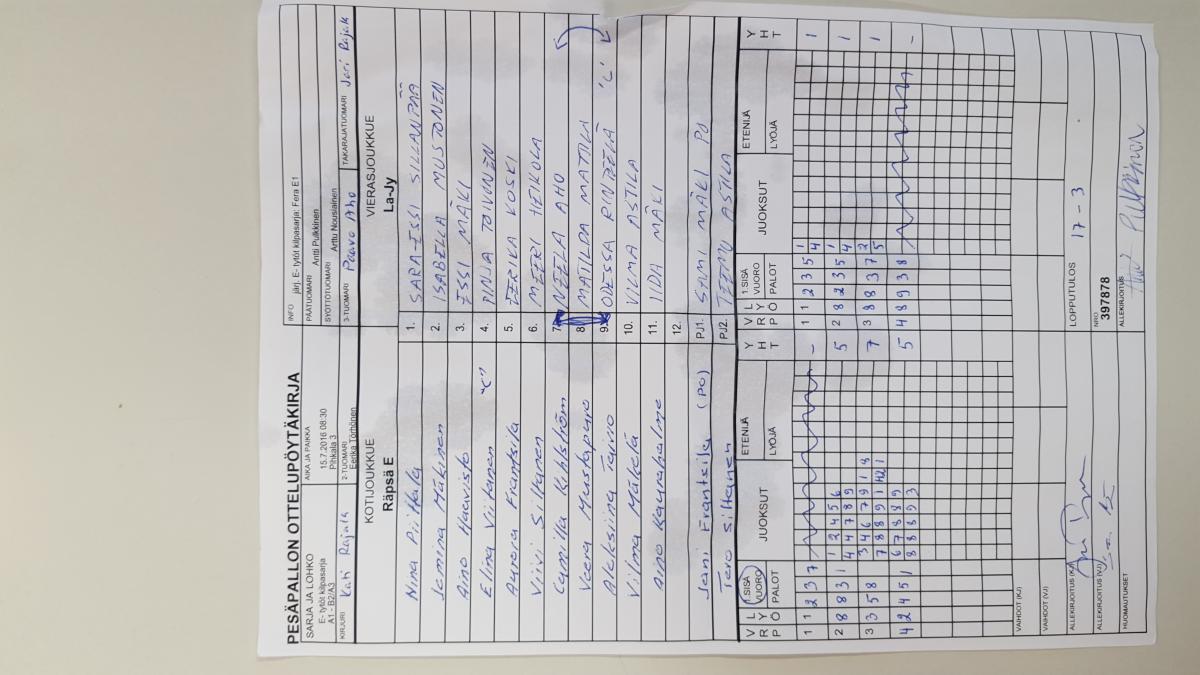 PESÄPALLON OTTELUPÖYTÄKIRJA
INFO järj. E- tytöt kilpasarja; Fera E1
SARJA JA LOHKO
E- tytöt kilpasarja
A1 - B2/A3
AIKA JA PAIKKA
15.7.2016 08:30
Pihkala 3
PÄÄTUOMARI Antti Pulkkinen
SYÖTTÖTUOMARI Arttu Nousiainen
KIRJURI Kati Rajala
2-TUOMARI Eerika Törhönen
3-TUOMARI Paavo Aho
TAKARAJATUOMARI Jari Rajak
KOTIJOUKKUE
Räpsä E
VIERASJOUKKUE
La-Jy
Nina Piittala 1. SARA-ESSI SILLANPÄÄ
Jemina Mäkinen 2. ISABELLA MUSTONEN
Aino Haavisto 3. ESSI MÄKI
Elina Viitanen "C" 4. PINJA TOIVONEN
Aurora Frantsila 5. EERIKA KOSKI
Viivi Siltanen 6. MEERI HEIKOLA
Camilla Kihlström 7. NEELA AHO
Veera Mustapuro 8 MATILDA MATTILA
Aleksiina Taino 9. ODESSA RINTELÄ 'C'
Vilma Mäkelä 10. VILMA ASTILA
Aino Kaurahalme 11. IIDA MÄKI
12.
Jani Frantsila (PO) PJ1. SAMI MÄKI PJ
Tero Siltanen PJ2. TEEMU ASTILA
VRP LYÖ 1.SISÄ VUORO PALOT JUOKSUT ETENIJÄ LYÖJÄ YHT VRP LYÖ 1.SISÄ VUORO PALOT JUOKSUT ETENIJÄ LYÖJÄ YHT
1 1 2 3 7 - 1 1 2 3 5 1 4 1
2 8 8 3 1 1 2 4 5 6 4 4 7 8 9 5 2 8 2 3 5 1 4 1
3 3 5 8 3 4 6 7 9 1 3 7 8 8 9 1 H2 1 7 3 8 8 3 7 2 5 1
4 2 4 5 1 6 7 8 8 9 8 8 8 9 3 5 4 8 9 3 8 -
VAIHDOT (KJ)
VAIHDOT (VJ)
LOPPUTULOS 17 - 3
ALLEKIRJOITUS (KJ)
NRO 397878
ALLEKIRJOITUS (VJ)
ALLEKIRJOITUS
HUOMAUTUKSET